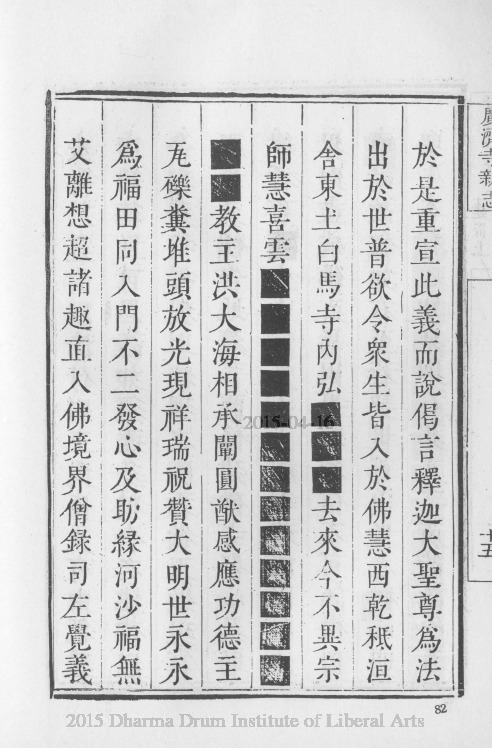 廣濟寺新志
十五
於是重宣此義而說偈言釋迦大聖尊為法
出於世普欲令眾生皆入於佛慧西乾秪洹
舍東土白馬寺內弘■■■去來今不異宗
師慧喜雲■■■■■■■■■■■■■
■■教主洪大海相承闡圓猷感應功德主
瓦礫糞堆頭放光現祥瑞祝贊大明世永永
為福田同入門不二發心及助緣河沙福無
艾離想超諸趣直入佛境界僧錄司左覺義
2015-04-16
82
2015 Dharma Drum Institute of Liberal Arts